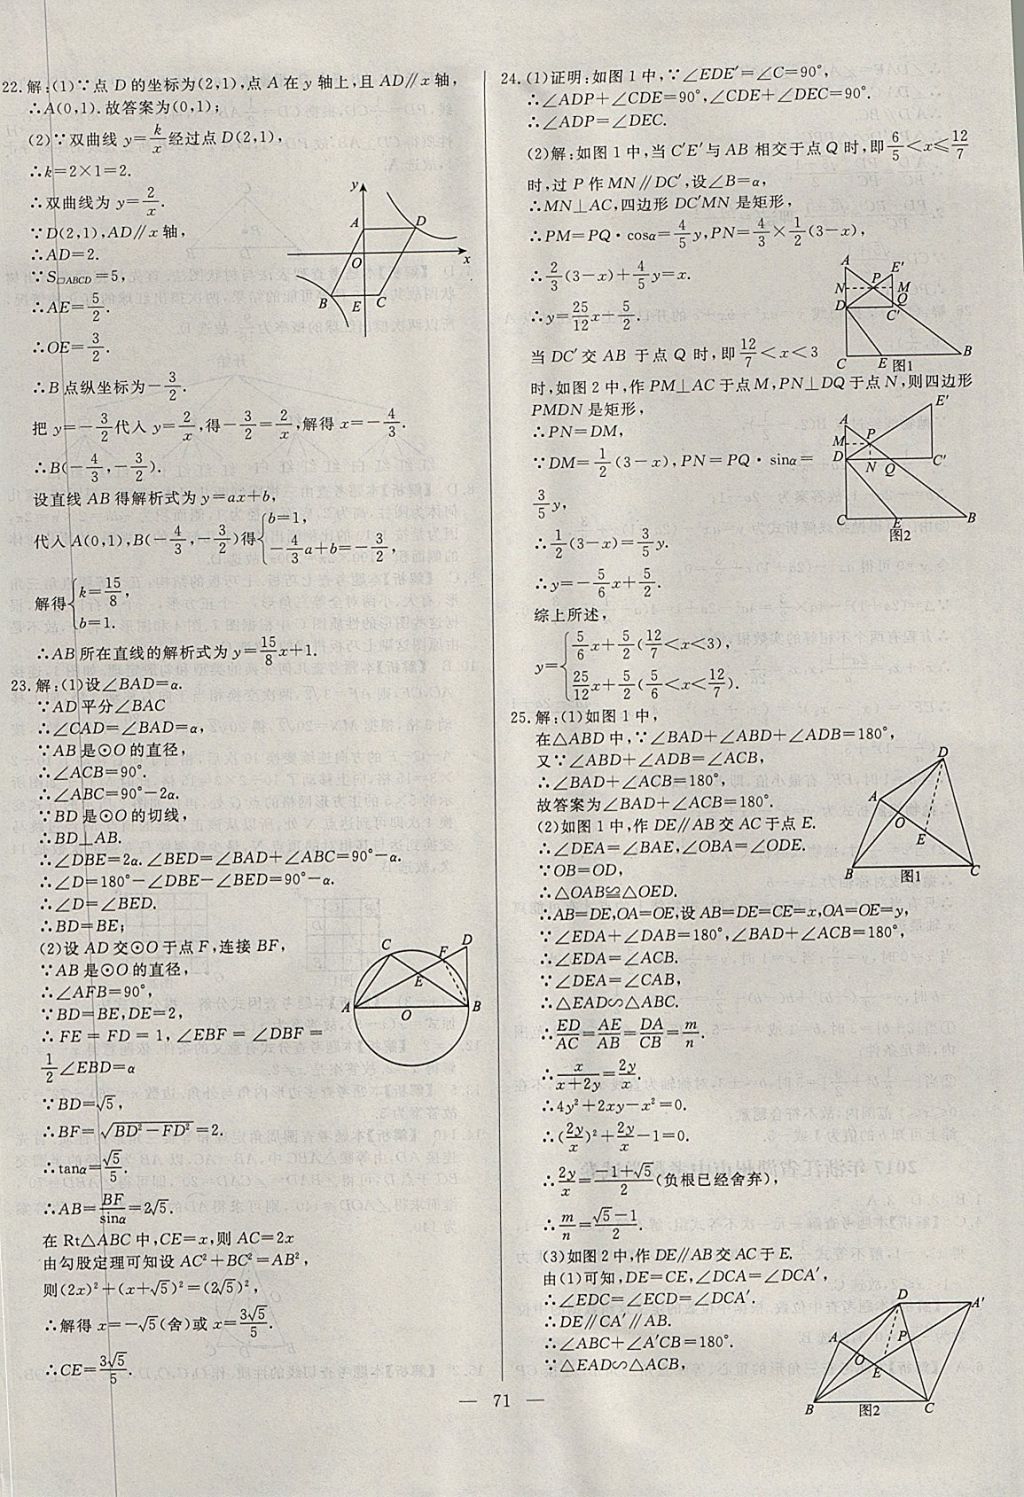 22.解:(1)∵点 D 的坐标为(2,1),点 A 在 y 轴上,且 AD∥x 轴,
∴A(0,1).故答案为(0,1);
(2)∵双曲线 y=k/x 经过点 D(2,1),
∴k=2×1=2.
∴双曲线为 y=2/x.
∵D(2,1),AD∥x 轴,
∴AD=2.
∵S▱ABCD=5,
∴AE=5/2.
∴OE=3/2.
∴B 点纵坐标为-3/2.
把 y=-3/2代入 y=2/x,得-3/2=2/x,解得 x=-4/3.
∴B(-4/3,-3/2).
设直线 AB 得解析式为 y=ax+b,
代入 A(0,1),B(-4/3,-3/2)得{b=1, -4/3a+b=-3/2,
解得{k=15/8, b=1.
∴AB 所在直线的解析式为 y=15/8x+1.
y
A
D
O
x
B
E
C
23.解:(1)设∠BAD=α.
∵AD 平分∠BAC
∴∠CAD=∠BAD=α,
∵AB 是⊙O 的直径,
∴∠ACB=90°.
∴∠ABC=90°-2α.
∵BD 是⊙O 的切线,
∴BD⊥AB.
∴∠DBE=2α.∠BED=∠BAD+∠ABC=90°-α.
∴∠D=180°-∠DBE-∠BED=90°-α.
∴∠D=∠BED.
∴BD=BE;
(2)设 AD 交⊙O 于点 F,连接 BF,
∵AB 是⊙O 的直径,
∴∠AFB=90°,
∵BD=BE,DE=2,
∴FE=FD=1,∠EBF=∠DBF=
1/2∠EBD=α
∵BD=√5,
∴BF=√(BD²-FD²)=2.
∴tanα=√5/5.
∴AB=BF/sinα=2√5.
在 Rt△ABC 中,CE=x,则 AC=2x
由勾股定理可知设 AC²+BC²=AB²,
则(2x)²+(x+√5)²=(2√5)²,
∴解得 x=-√5(舍)或 x=3√5/5.
∴CE=3√5/5.
C
F
D
E
A
O
B
24.(1)证明:如图 1 中,∵∠EDE′=∠C=90°,
∴∠ADP+∠CDE=90°,∠CDE+∠DEC=90°.
∴∠ADP=∠DEC.
(2)解:如图 1 中,当 C′E′与 AB 相交于点 Q 时,即6/5<x≤12/7
时,过 P 作 MN∥DC′,设∠B=α,
∴MN⊥AC,四边形 DC′MN 是矩形,
∴PM=PQ·cosα=4/5y,PN=4/3×1/2(3-x),
∴2/3(3-x)+4/5y=x.
∴y=25/12x-5/2.
当 DC′交 AB 于点 Q 时,即12/7<x<3
时,如图 2 中,作 PM⊥AC 于点 M,PN⊥DQ 于点 N,则四边形
PMDN 是矩形,
∴PN=DM,
∵DM=1/2(3-x),PN=PQ·sinα=
3/5y,
∴1/2(3-x)=3/5y.
∴y=-5/6x+5/2.
综上所述,
y={5/6x+5/2(12/7<x<3),
25/12x+5/2(5/6<x<12/7).
A
E′
N
P
M
D
Q
C′
C
E
B
图1
E′
A
M
P
D
N
Q
C′
C
E
B
图2
25.解:(1)如图 1 中,
在△ABD 中,∵∠BAD+∠ABD+∠ADB=180°,
又∵∠ABD+∠ADB=∠ACB,
∴∠BAD+∠ACB=180°;
故答案为∠BAD+∠ACB=180°.
(2)如图 1 中,作 DE∥AB 交 AC 于点 E.
∴∠DEA=∠BAE,∠OBA=∠ODE.
∵OB=OD,
∴△OAB≌△OED.
∴AB=DE,OA=OE,设 AB=DE=CE=x,OA=OE=y,
∵∠EDA+∠DAB=180°,∠BAD+∠ACB=180°,
∴∠EDA=∠ACB.
∵∠DEA=∠CAB,
∴△EAD∽△ABC.
∴ED/AC=AE/AB=DA/CB=m/n.
∴x/(x+2y)=2y/x.
∴4y²+2xy-x²=0.
∴(2y/x)²+2y/x-1=0.
∴2y/x=(-1+√5)/2(负根已经舍弃),
∴m/n=(√5-1)/2.
(3)如图 2 中,作 DE∥AB 交 AC 于 E.
由(1)可知,DE=CE,∠DCA=∠DCA′,
∴∠EDC=∠ECD=∠DCA′.
∴DE∥CA′∥AB.
∴∠ABC+∠A′CB=180°.
∵△EAD∽△ACB,
D
A
O
E
B
C
图1
D
A′
A
O
P
E
B
C
图2
— 71 —